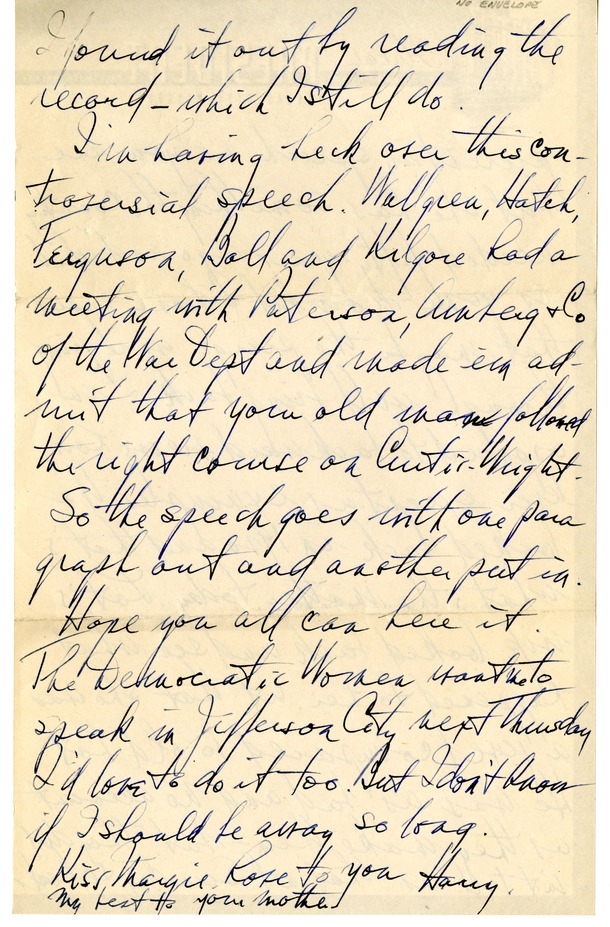 NO ENVELOPE
I found it out by reading the
record – which I still do.
I'm having heck over this con-
troversial speech. Wallgren, Hatch,
Ferguson, Ball and Kilgore had a
meeting with Paterson, Amberg & Co
of the War Dept and made em ad-
mit that your old man followed
the right course on Curtis-Wright.
So the speech goes with one para
graph out and another put in.
Hope you all can here it.
The Democratic Women want me to
speak in Jefferson City next Thursday
I'd love to do it too. But I don't know
if I should be away so long.
Kiss Margie. Love to you Harry.
My best to your mother